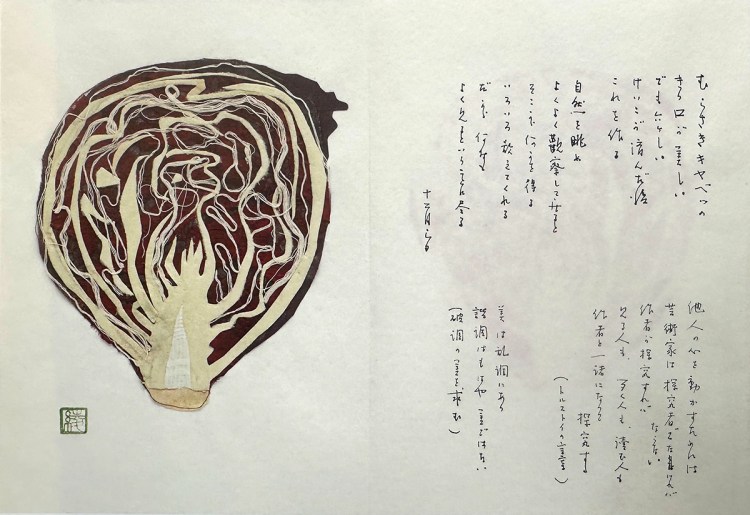 むらさきキャベツの
きり口が美しい
でも六ヶしい
けいこが済んだ後
これを作る
自然を眺め
よくよく観察してみると
そこから何かを得る
いろいろ教えてくれる
だから何でも
よく見るということに尽きる
他人の心を動かすためには
芸術家は探究者でなければ
ならない
作者が探究すれば
見る人も、聞く人も、読む人も
作者と一諸になって
探究する
(トルストイの言葉)
美は乱調にあり
諧調はもはや美ではない
(破調の美を求む)